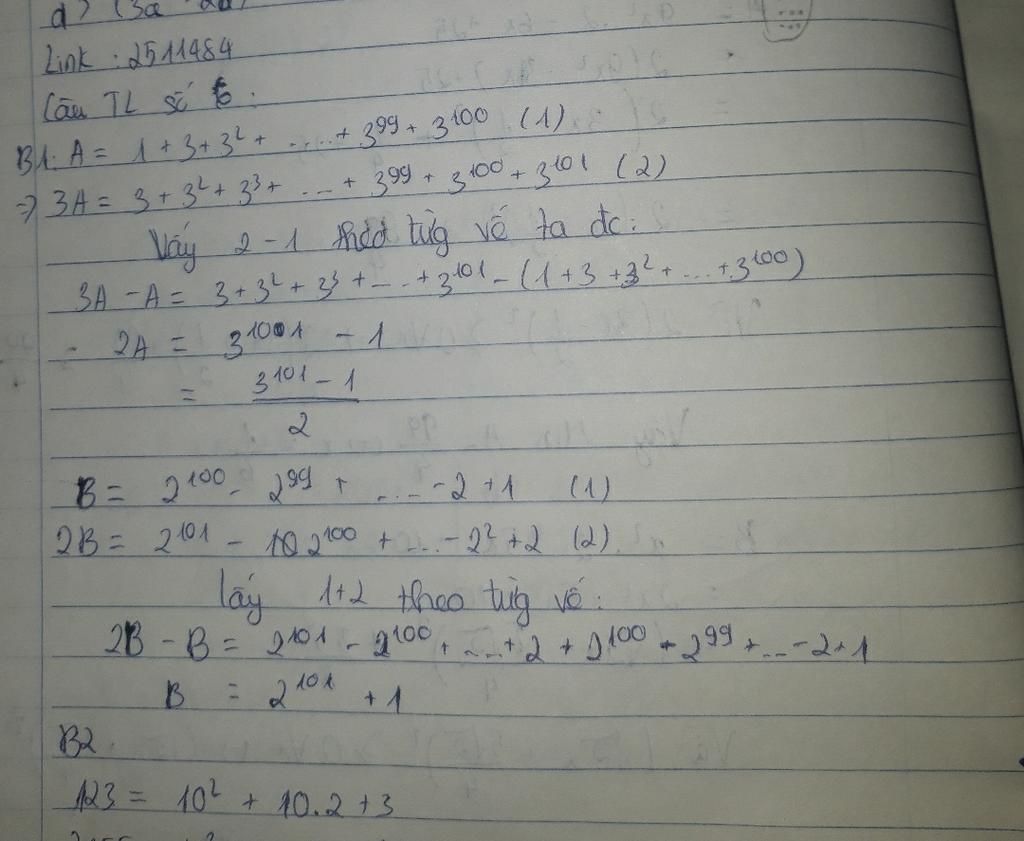 d) (3a
Link : 2511484
Câu TL số 6 :
B1: A = 1 + 3 + 3² + ..... + 3⁹⁹ + 3¹⁰⁰ (1)
=> 3A = 3 + 3² + 3³ + ... + 3⁹⁹ + 3¹⁰⁰ + 3¹⁰¹ (2)
Lấy 2 - 1 theo từg vế ta đc :
3A - A = 3 + 3² + 3³ + ... + 3¹⁰¹ - (1 + 3 + 3² + ... + 3¹⁰⁰)
2A = 3¹⁰¹ - 1
= \frac{3¹⁰¹ - 1}{2}
B = 2¹⁰⁰ - 2⁹⁹ + ..... - 2 + 1 (1)
2B = 2¹⁰¹ - 2¹⁰⁰ + ... - 2² + 2 (2)
lấy 1+2 theo từg vế :
2B - B = 2¹⁰¹ - 2¹⁰⁰ + .... + 2 + 2¹⁰⁰ - 2⁹⁹ + ... - 2 + 1
B = 2¹⁰¹ + 1
B2.
123 = 10² + 10.2 + 3